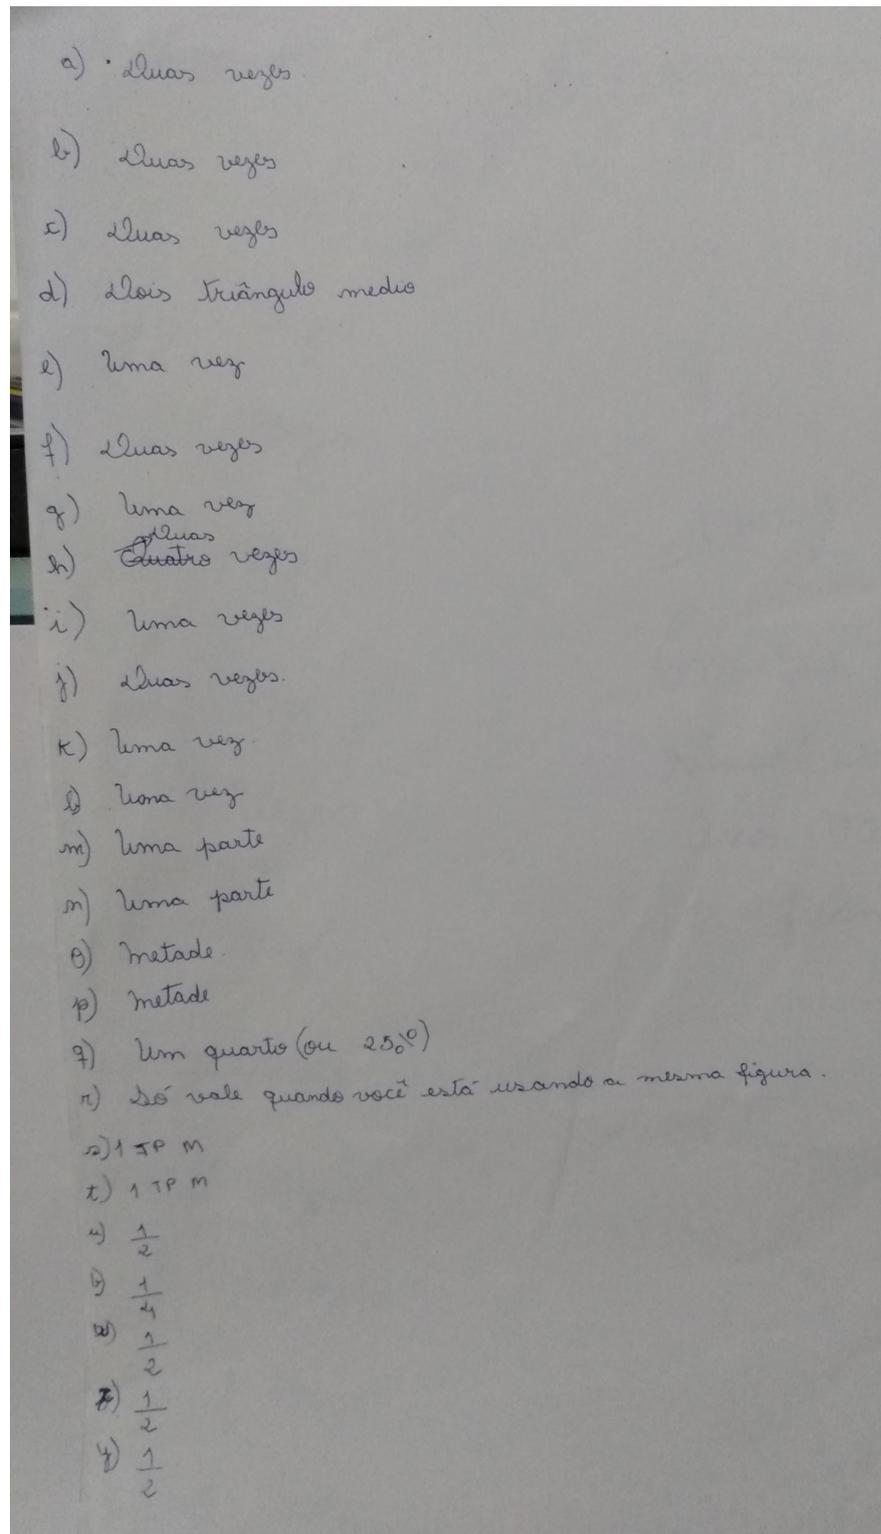 a) Duas vezes
b) Duas vezes
c) Duas vezes
d) Dois triângulo medio
e) Uma vez
f) Duas vezes
g) Uma vez
Duas
h) Quatro vezes
i) Uma vezes
j) Duas vezes.
k) Uma vez.
l) Uma vez
m) Uma parte
n) Uma parte
o) Metade.
p) Metade
q) Um quarto (ou 25%)
r) Só vale quando você está usando a mesma figura.
s) 1 TP M
t) 1 TP M
u) 1/2
v) 1/4
w) 1/2
x) 1/2
y) 1/2